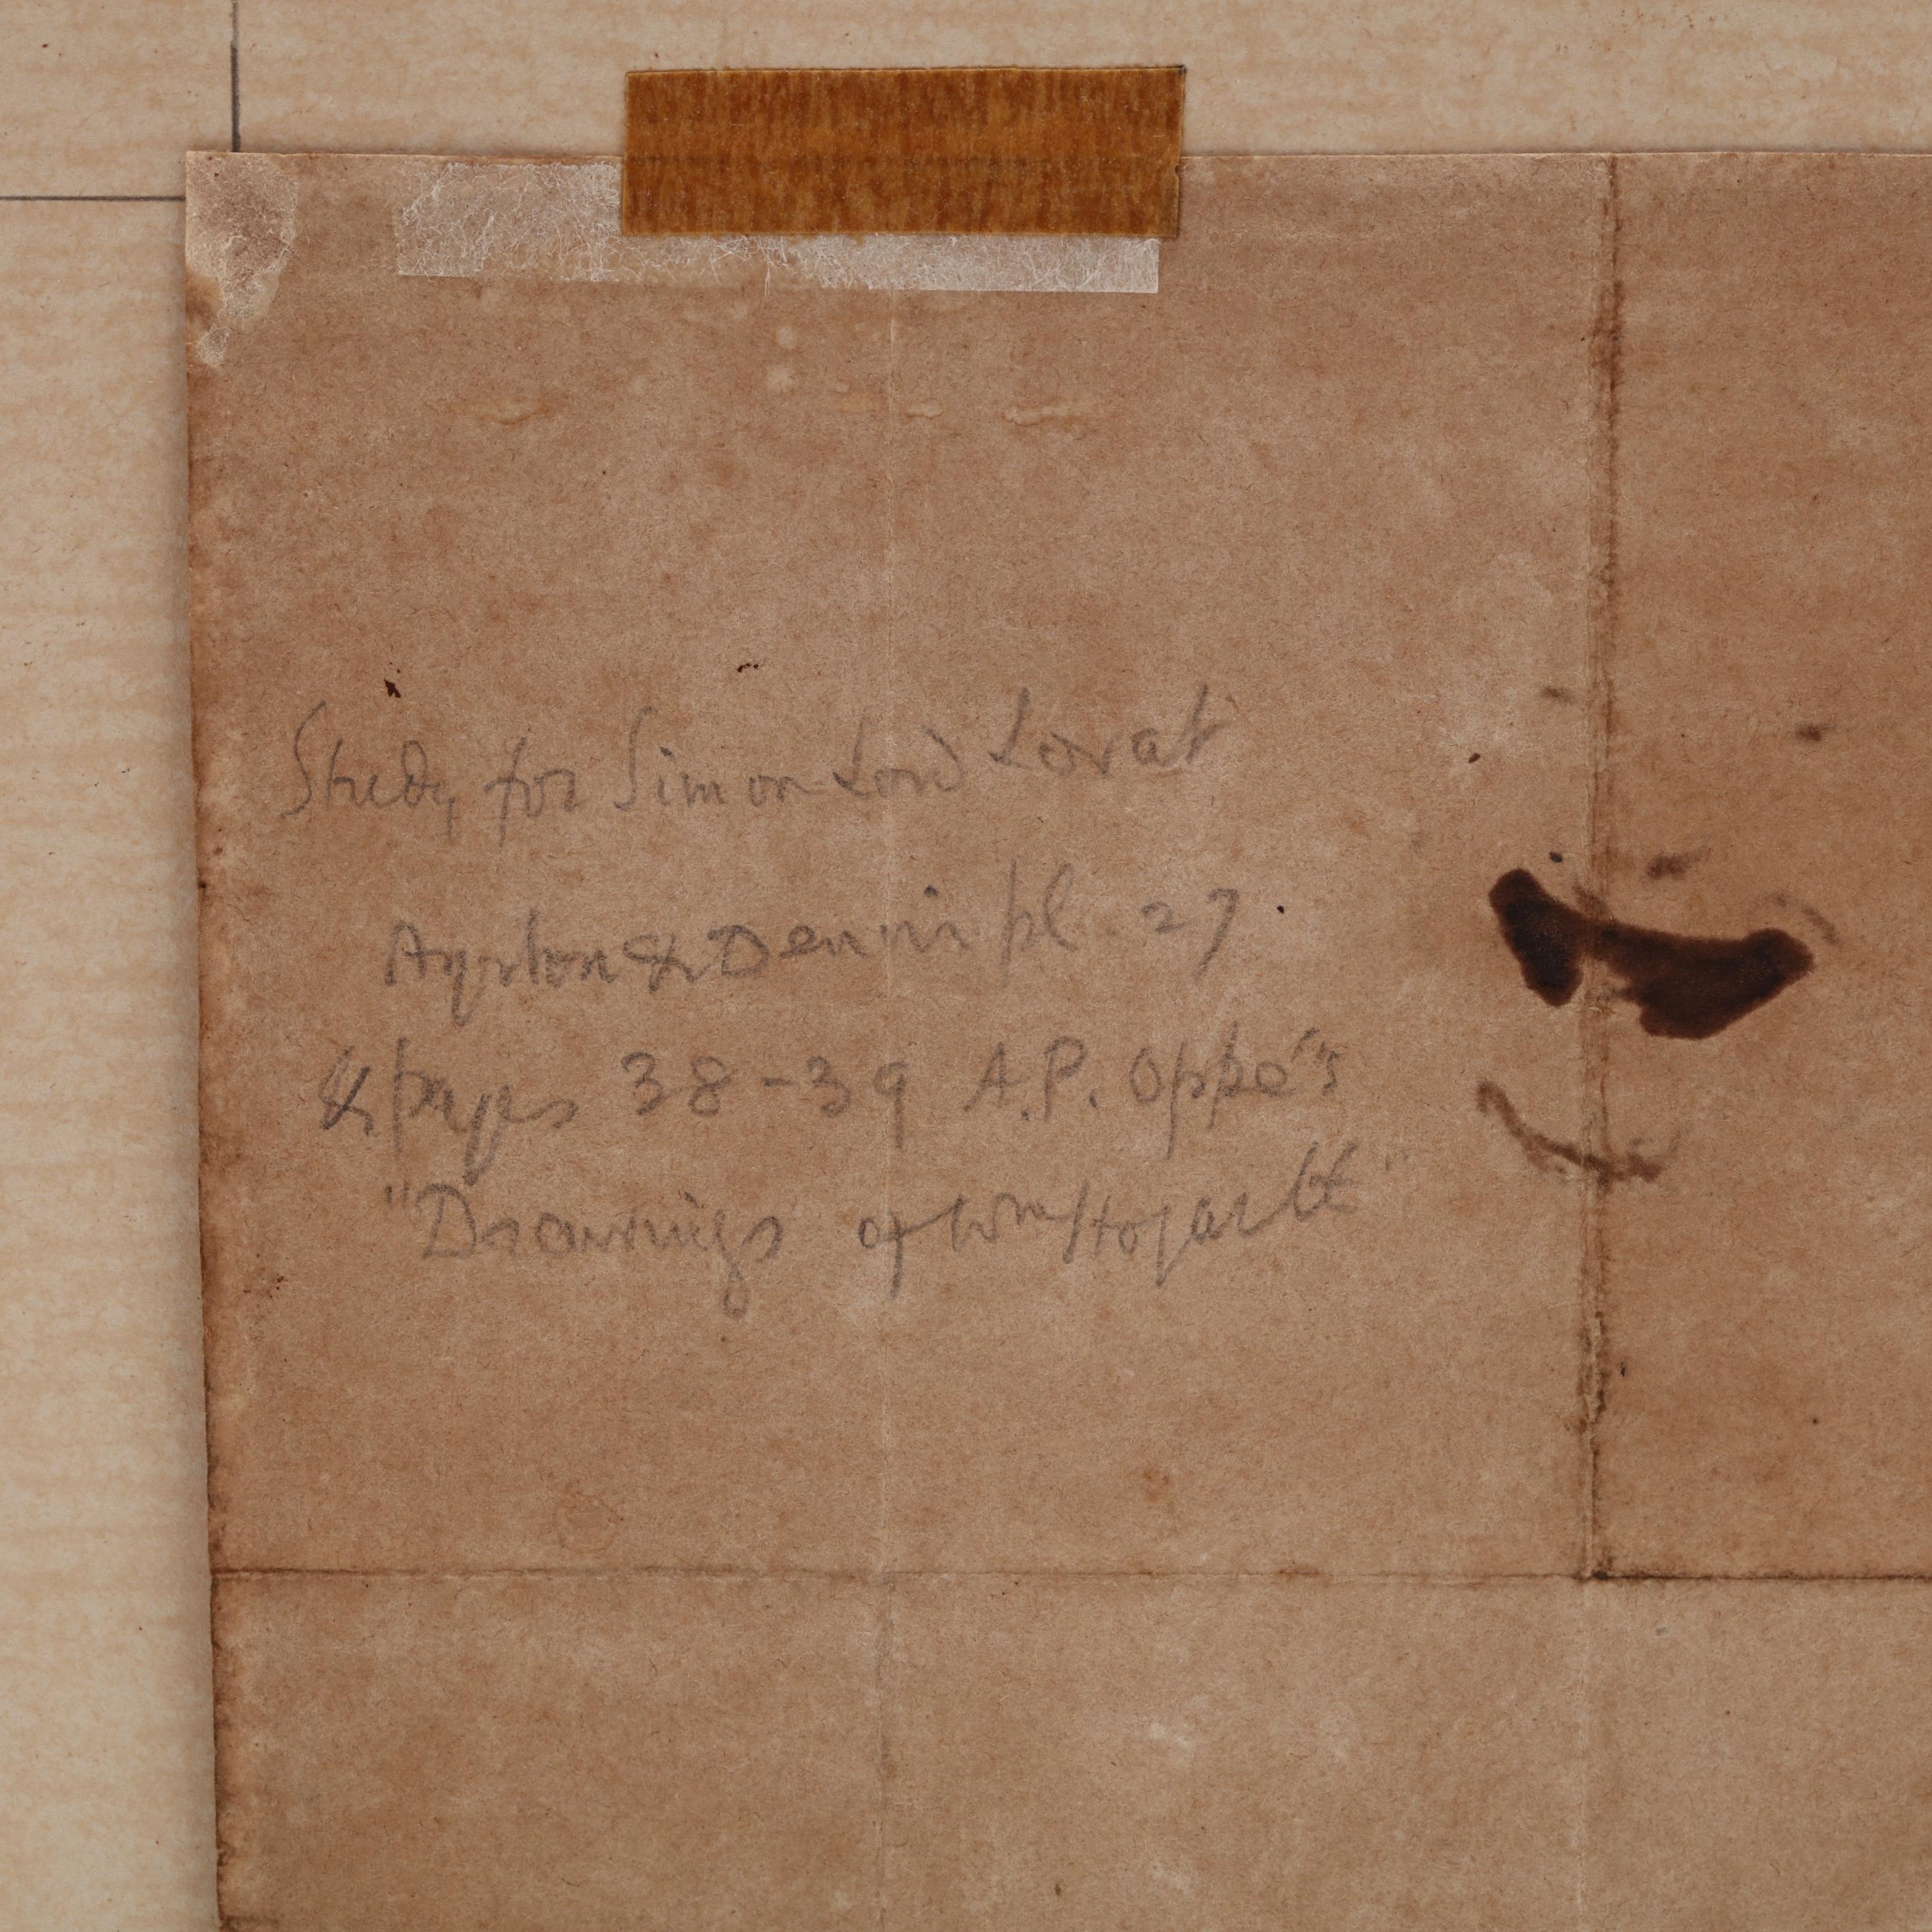 Study for Simon Lord Lovat
Ayrton & Dennis pl. 27.
& pages 38-39 A.P. Oppé's
"Drawings of Wm Hogarth"